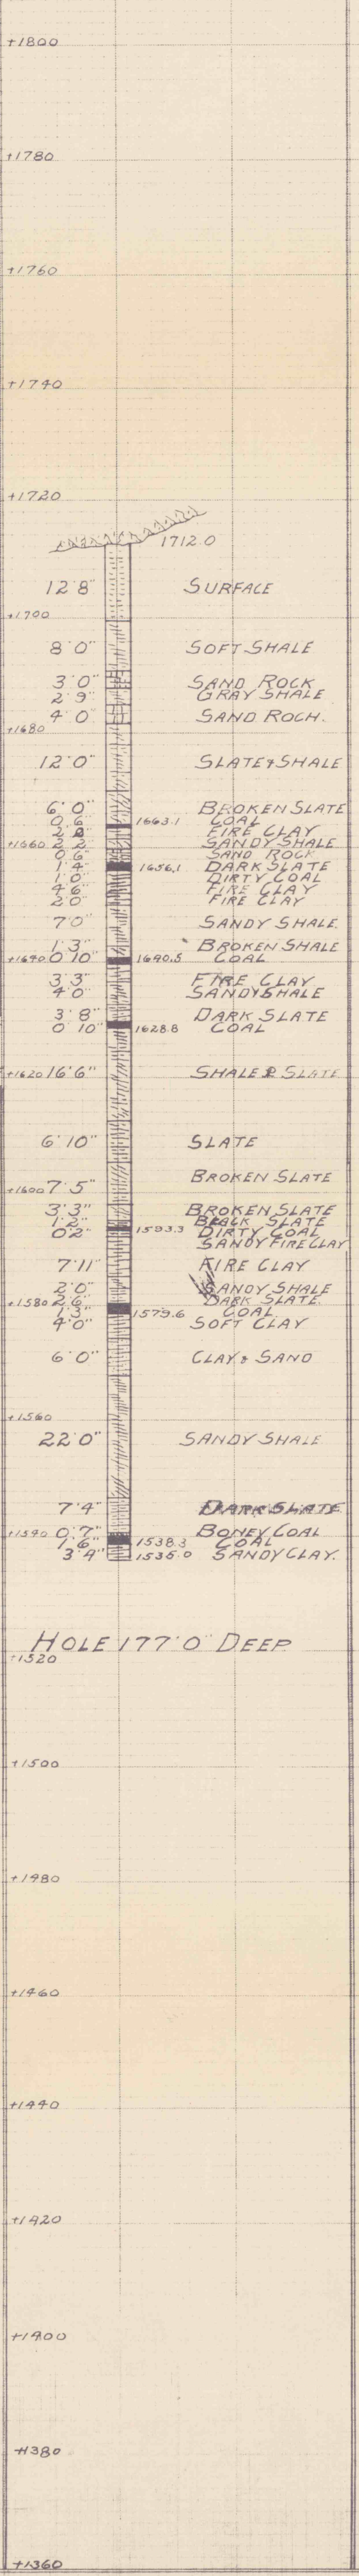 +1800
+1780
+1760
+1740
+1720
1712.0
12'8" SURFACE
+1700
8'0" SOFT SHALE
3'0" SAND ROCK
2'9" GRAY SHALE
4'0" SAND ROCH.
+1680
12'0" SLATE & SHALE
6'0" BROKEN SLATE
0'6" 1663.1 COAL
FIRE CLAY
+1660 2'2" SANDY SHALE
0'6" SAND ROCK
1'4" 1656.1 DARK SLATE
1'0" DIRTY COAL
4'6" FIRE CLAY
2'0" FIRE CLAY
7'0" SANDY SHALE
1'3" BROKEN SHALE
+1640 0'10" 1640.5 COAL
3'3" FIRE CLAY
4'0" SANDY SHALE
3'8" DARK SLATE
0'10" 1628.8 COAL
+1620 16'6" SHALE & SLATE
6'10" SLATE
BROKEN SLATE
+1600 7'5"
3'3" BROKEN SLATE
1'2" BLACK SLATE
0'2" 1593.3 DIRTY COAL
SANDY FIRE CLAY
7'11" FIRE CLAY
2'0" SANDY SHALE
+1580 2'6" DARK SLATE
1'3" 1579.6 COAL
4'0" SOFT CLAY
6'0" CLAY & SAND
+1560
22'0" SANDY SHALE
7'4" DARK SLATE
+1540 0'7" BONEY COAL
1'6" 1538.3 COAL
3'4" 1535.0 SANDY CLAY.
HOLE 177'0" DEEP
+1520
+1500
+1480
+1460
+1440
+1420
+1400
+1380
+1360